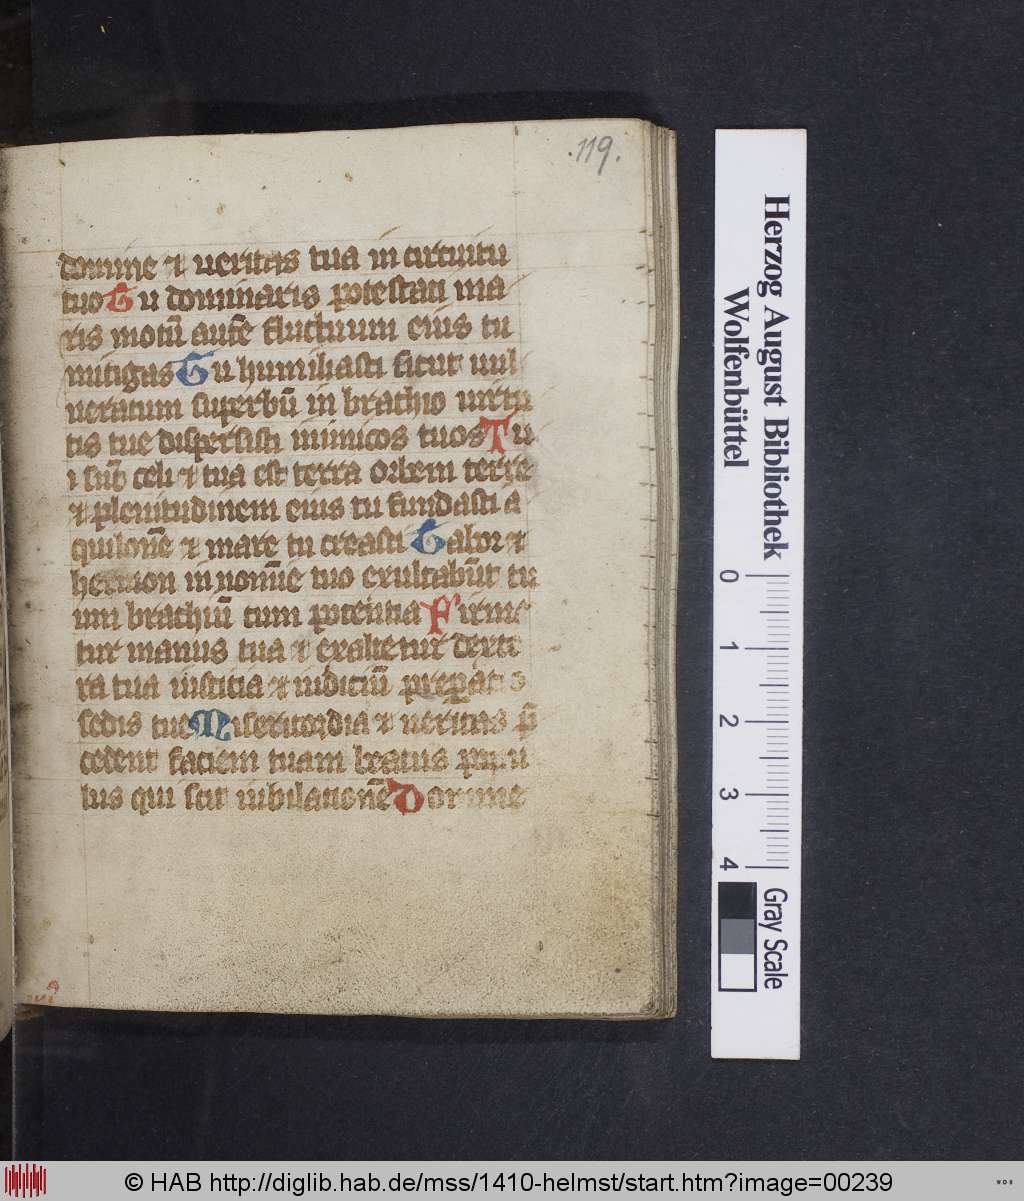 .119.
domine et ueritas tua in circuitu
tuo Tu dominaris potestati ma
ris motū autē fluctuum eius tu
mitigas Tu humiliasti sicut uul
neratum superbū in brachio uirtu
tis tue dispersisti inimicos tuos Tu
i sūt celi et tua est terra orbem terre
et plenitudinem eius tu fundasti a
quilonē et mare tu creasti Tabor et
hermon in nomīe tuo exultabūt tu
um brachiū cum potentia Firme
tur manus tua et exaltetur dexte
ra tua iusticia et iudiciū preparatio
sedis tue Misericordia et ueritas p̄
cedent faciem tuam beatus popu
lus qui scit iubilationē Domine
Herzog August Bibliothek
Wolfenbüttel
0 1 2 3 4
Gray Scale
© HAB http://diglib.hab.de/mss/1410-helmst/start.htm?image=00239